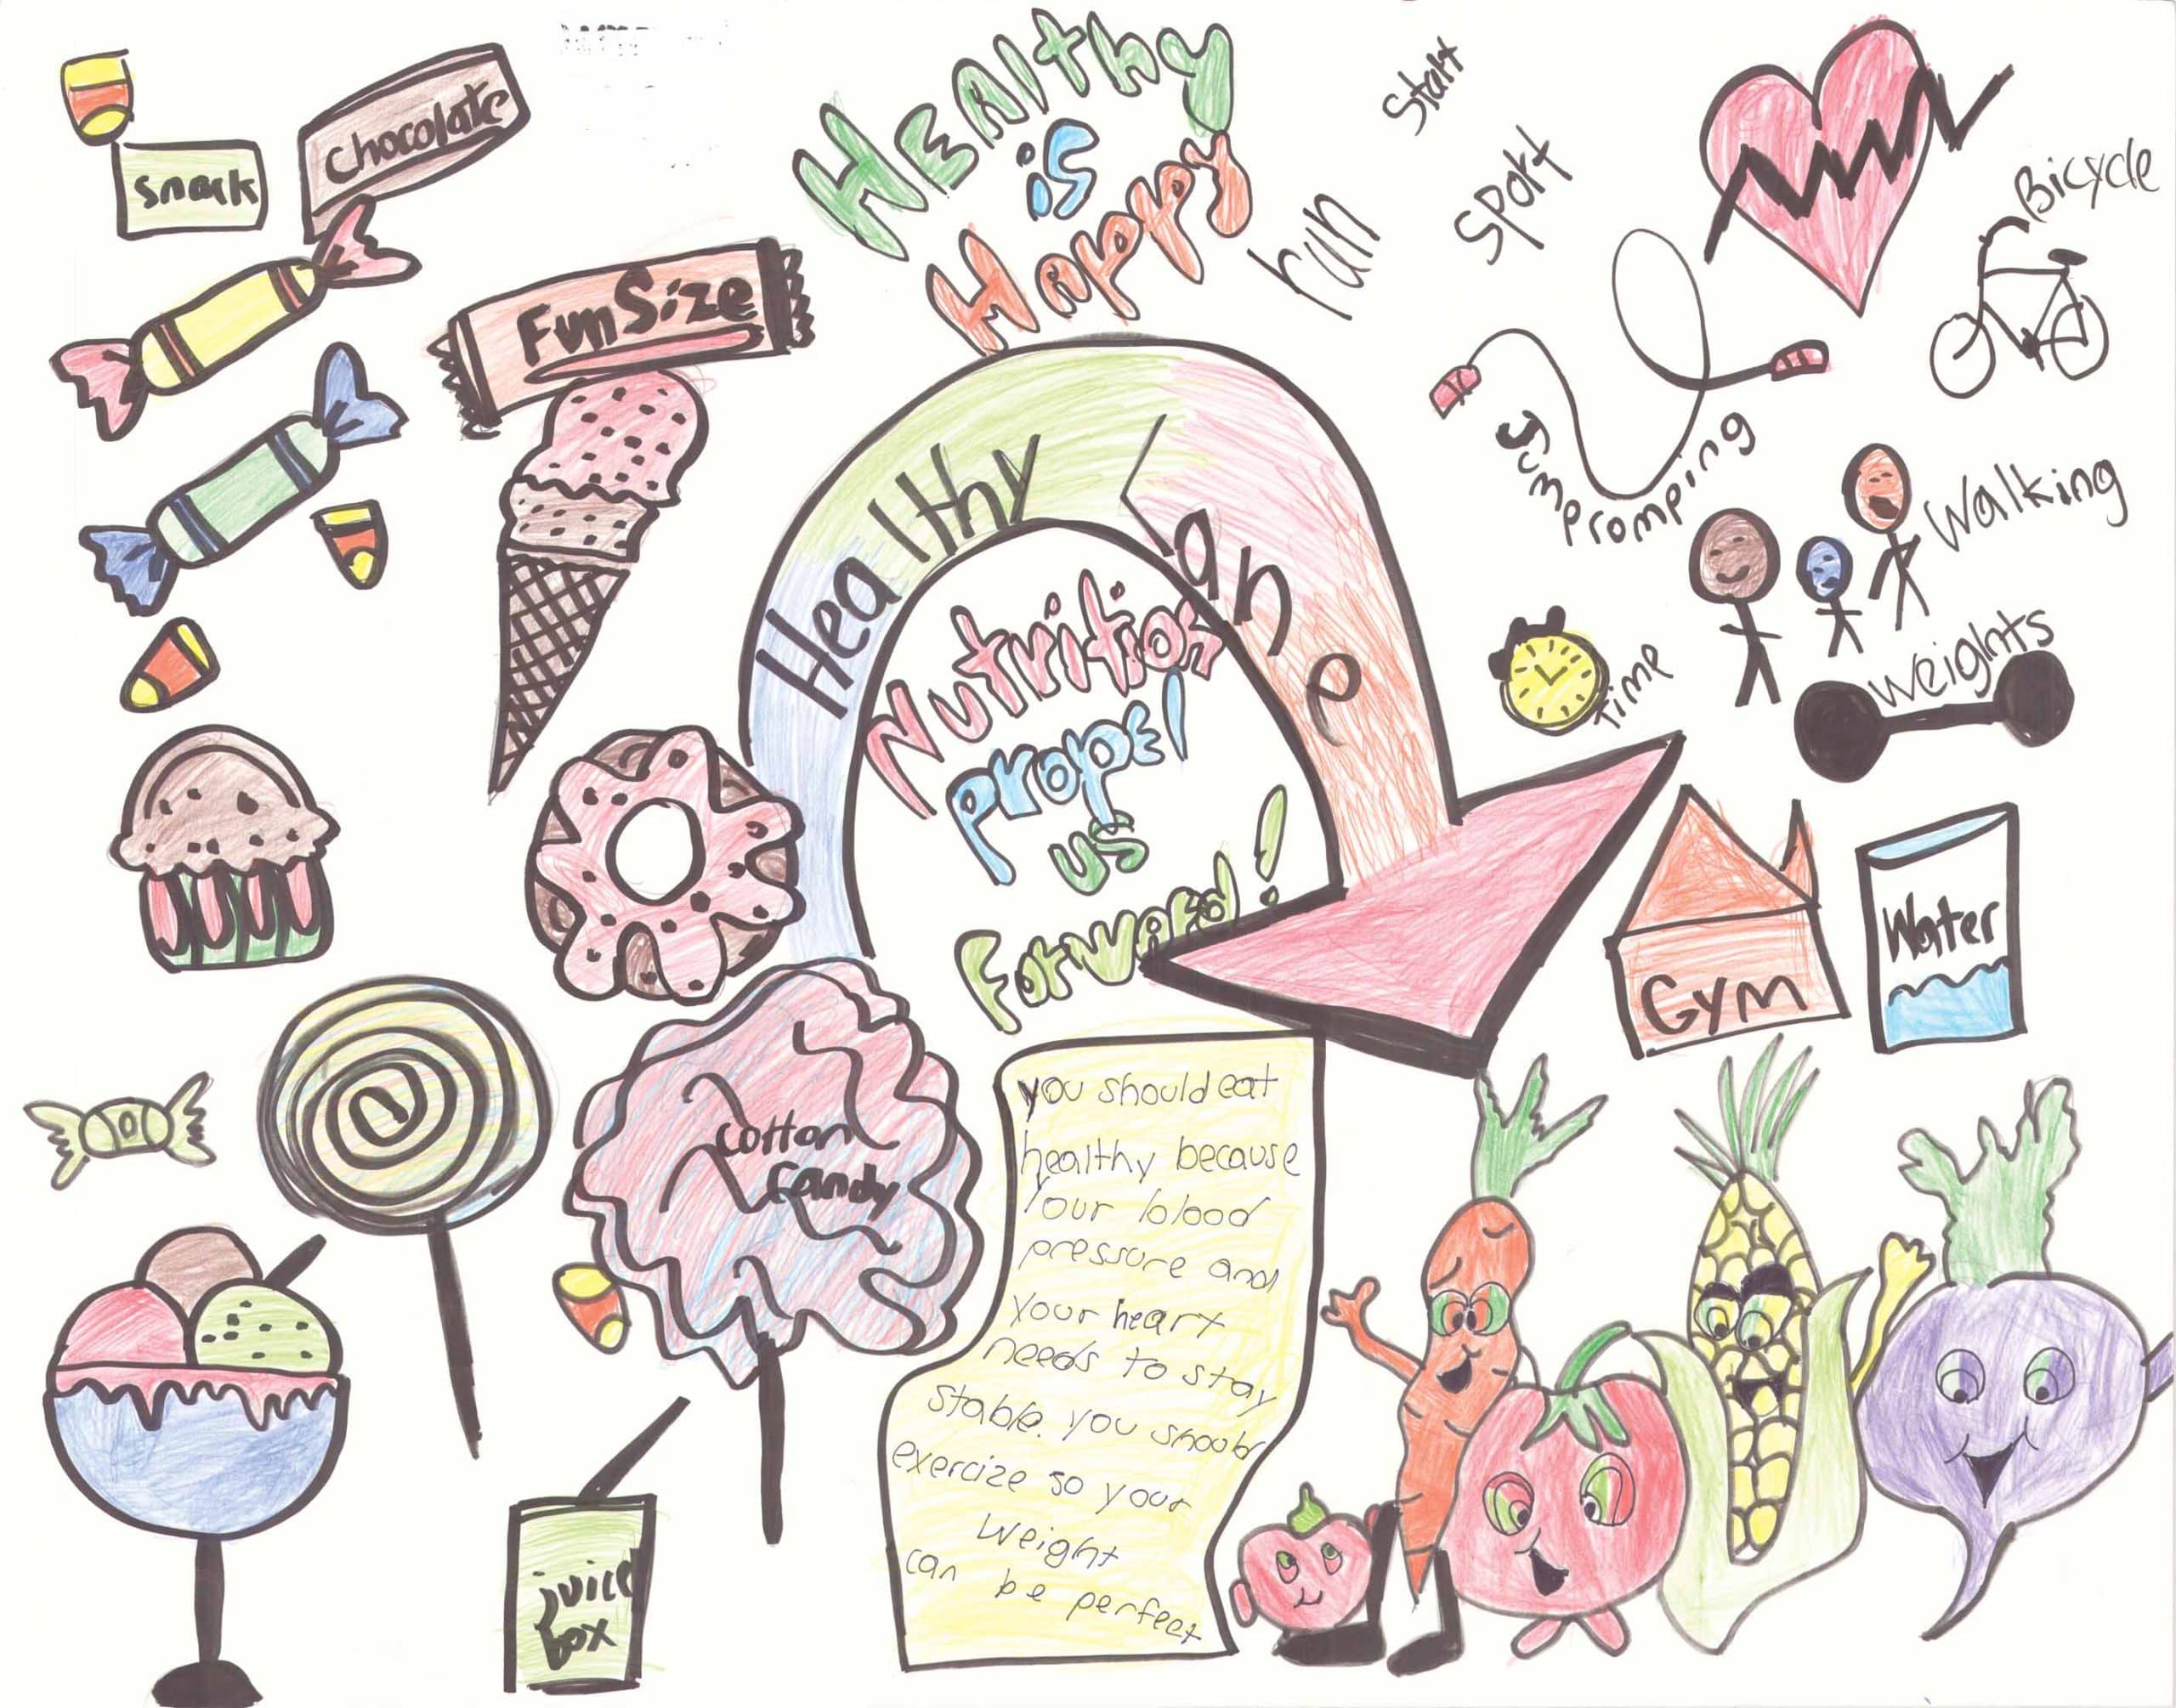 snack
chocolate
Fun Size
HEAlthy
is
Happy
run
Start
Sport
Bicycle
Jumpromping
Walking
Weights
Time
Healthy Lane
Nutrition
propel
us
Forward!
Gym
Water
cotton
candy
juice
box
you should eat
healthy because
Your blood
pressure and
Your heart
needs to stay
stable. you should
exercize so your
Weight
can be perfect